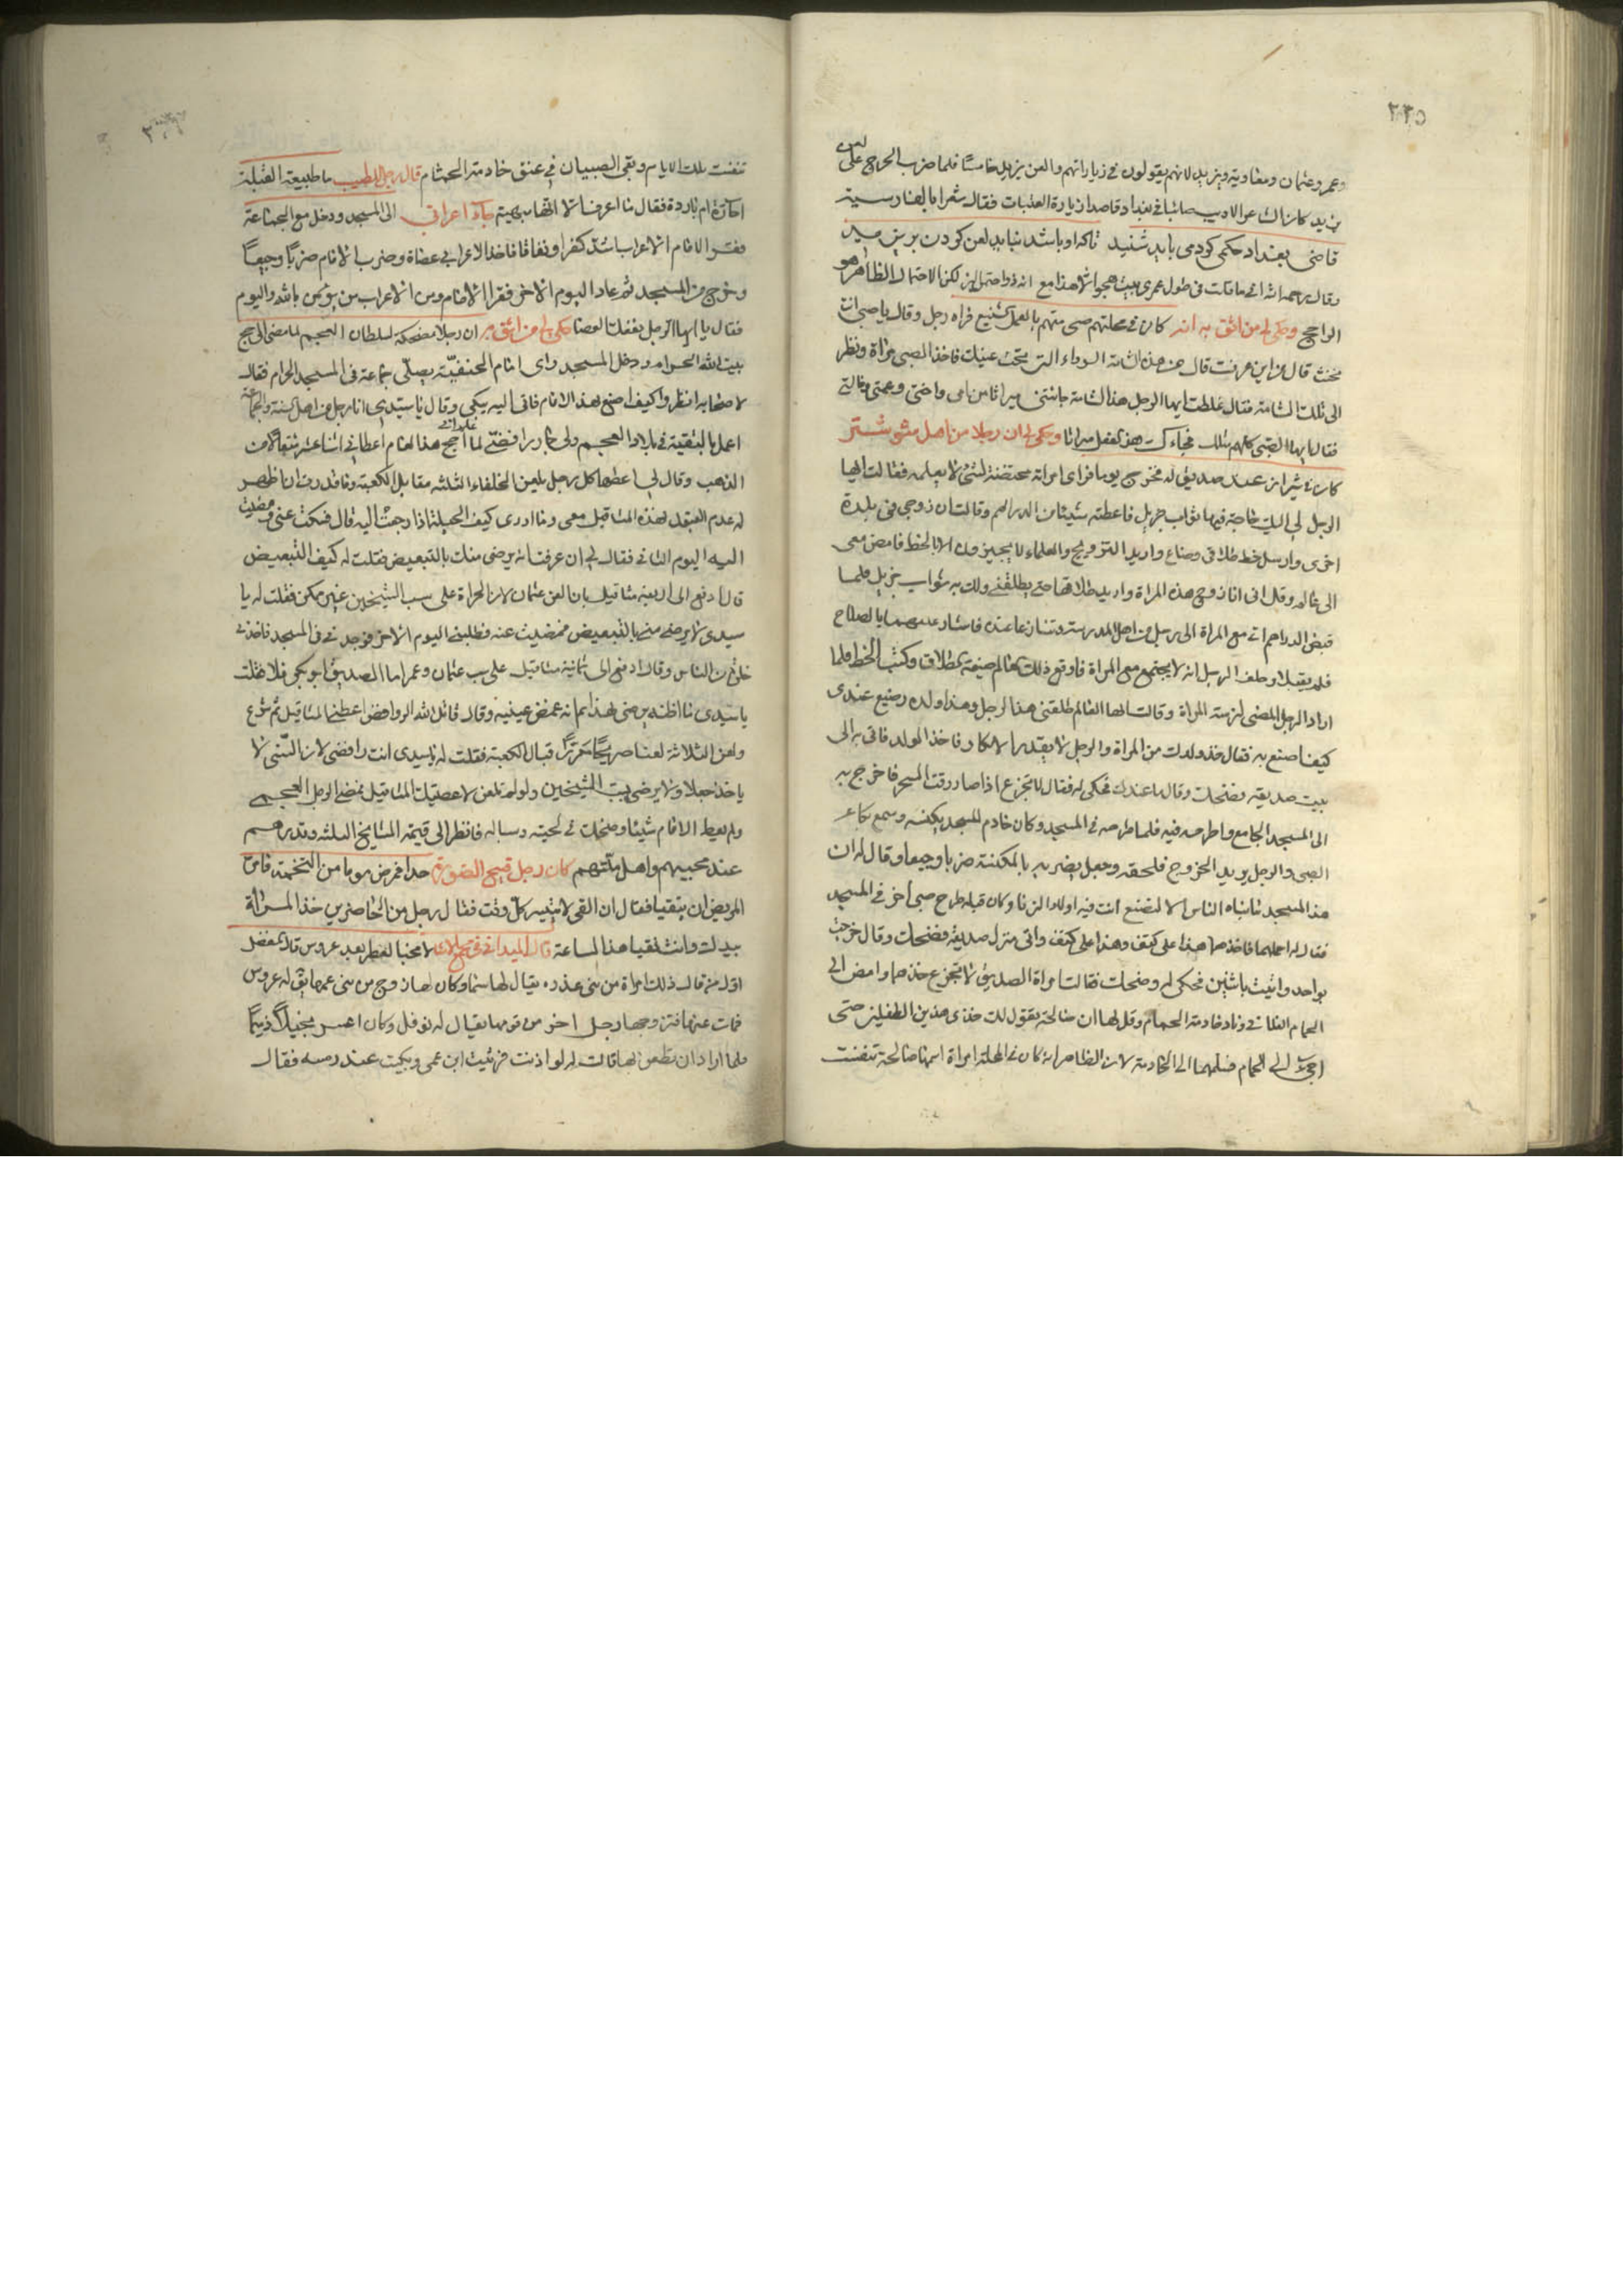 ٢٢٥
لعن
وعمر وعثمان ومعاوية ويزيد لانهم يقولون في زياراتهم والعن يزيد خامسا فلما ضرب الخرج على
يزيد كان الشاعر الاديب صائبا في بغداد قاصدا زيارة العتبات فقال شعرا بالفارسية
قاضى بغداد حكمى كرد مى بايد شنيد تا كه او باشد نبايد لعن كردن بر يزيد
وقال رحمه الله انى ما قلت في طول عمرى بيت هجو الا هذا مع انه ذو احتمالين لكن الاحتمال الظاهر هو
الراجح وحكى لى من اثق به انه كان في محلتهم صبى متهم بالعمل الشنيع فراه رجل وقال يا صبى انت
مخنث قال من اين عرفت قال من هذه الشامة السوداء التى تحت عينك فاخذ الصبى مراة ونظر
الى تلك الشامة فقال غلطت ايها الرجل هذه الشامة جائتنى ميراثا من امى واختى وعمتى وخالتى
فقال ايها الصبى كلهم مثلك فجاءك هذا الفعل ميراثا وحكى لى ان رجلا من اهل شوشتر
كان في شيراز عند صديق له فخرج يوما فراى امراة محتضنة لشئ لا يعلمه فقالت ايها
الرجل لى اليك حاجة فيها ثواب جزيل فاعطته شيئا من الدراهم وقالت ان زوجى في بلدة
اخرى وارسل خط طلاقى وضاع واريد التزويج والعلماء لا يجيزون الا بالخط فامض معى
الى عالم وقل انى انا زوج هذه المراة واريد طلاقها حتى يطلقنى ولك به ثواب جزيل فلما
قبض الدراهم اتى مع المراة الى رجل من اهل المدرسة وتنازعا عنده فاشار عليهما بالصلاح
فلم يقبلا وحلف الرجل انه لا يجتمع مع المراة فاوقع ذلك العالم صيغة الطلاق وكتب الخط فلما
اراد الرجل المضى لزمته المراة وقالت ايها العالم طلقنى هذا الرجل وهذا ولده رضيع عندى
كيف اصنع به فقال خذ ولدك من المراة والرجل لا يقدر على الانكار فاخذ الولد فاتى به الى
بيت صديقه فضحك وقال ما عندك فحكى له فقال لا تجزع اذا صار وقت السحر فاخرج به
الى المسجد الجامع واطرحه فيه فلما طرحه في المسجد وكان خادم المسجد يكنسه وسمع بكاء
الصبى والرجل يريد الخروج فلحقه وجعل يضربه بالمكنسة ضربا وجيعا وقال له ان
هذا المسجد بناه الناس الا لتضع انت فيه اولاد الزنا وكان قبله طرح صبى آخر في المسجد
فقال له احملهما فاخذهما هذا على كتف وهذا على كتف واتى منزل صديقه فضحك وقال خرجت
بواحد واتيت باثنين فحكى له وضحك فقالت امراة الصديق لا تجزع خذهما وامض الى
الحمام الفلانى وناد خادمة الحمام وقل لها ان صالحة تقول لك خذى هذين الطفلين حتى
اجئ الى الحمام فسلمهما الى الخادمة لان الظاهر انه كان في المحلة امراة اسمها صالحة تنفست
تنفست تلك الايام وبقى الصبيان في عنق خادمة الحمام قال رجل لطبيب ما طبيعة القبلة
احارة ام باردة فقال ما اعرف الا انها مهيجة جاء اعرابى الى المسجد ودخل مع الجماعة
فقرا الامام الاعراب اشد كفرا ونفاقا فاخذ الاعرابى عصاة وضرب الامام ضربا وجيعا
وخرج من المسجد ثم عاد اليوم الآخر فقرا الامام ومن الاعراب من يؤمن بالله واليوم
فقال يا ايها الرجل نفعك العصا حكى لى من اثق به ان رجلا مضحكة لسلطان العجم لما مضى الى حج
بيت الله الحرام ودخل المسجد راى امام الحنفية يصلى جماعة في المسجد الحرام فقال
لاصحابه انظروا كيف اصنع بهذا الامام فاتى اليه يبكى وقال يا سيدى انا رجل من اهل السنة والجماعة
اعمل بالتقية في بلاد العجم ولى جار رافضى لما اراد الحج هذا العام اعطانى اثنا عشر مثقالا من
الذهب وقال لى اعطها كل رجل يلعن الخلفاء الثلثة مقابل الكعبة وما قدرت ان اظهر
له عدم القبول لهذه المثاقيل معى وما ادرى كيف الحيلة اذا رجعت اليه قال فسكت عنى ومضيت
اليه اليوم الثانى فقال لى ان عرفت انه يرضى منك بالتبعيض فقلت له كيف التبعيض
قال ادفع الى اربعة مثاقيل بان العن عثمان لان الجراة على سب الشيخين غير ممكن فقلت له يا
سيدى لا يرضى منى بالتبعيض فمضيت عنه فطلبنى اليوم الآخر فوجدنى في المسجد فاخذنى
خلوة من الناس وقال ادفع الى ثمانية مثاقيل على سب عثمان وعمر اما الصديق ابو بكر فلا فقلت
يا سيدى ما اظنه يرضى بهذا ثم انه غمض عينيه وقال قاتل الله الروافض اعطنى المثاقيل ثم شرع
ولعن الثلاثة لعنا صريحا قبال الكعبة فقلت له يا سيدى انت رافضى لان السنى لا
ياخذ جعلا ولا يرضى بسب الشيخين ولو لم تلعن لاعطيتك المثاقيل فمضى الرجل العجمى
ولم يعط الامام شيئا وضحك في لحيته وسباله فانظر الى قيمة المشايخ الثلثة وقدرهم
عند محبيهم واهل ملتهم كان رجل قبيح الصورة جدا فمرض يوما من التخمة فامر
المريض ان يتقيا فقال ان القى لا يتيسر كل وقت فقال رجل من الحاضرين خذ المراة
بيدك وانت تتقيا هذه الساعة قال الميدانى في مجمع الامثال لا مخبا لعطر بعد عروس قال المفضل
اول من قال ذلك امراة من بنى عذرة يقال لها اسما وكان لها زوج من بنى عمها يقال له عروس
فمات عنها فتزوجها رجل آخر من قومها يقال له نوفل وكان اعسر بخيلا ذميما
فلما اراد ان يظعن بها قالت له لو اذنت فرثيت ابن عمى وبكيت عند رمسه فقال